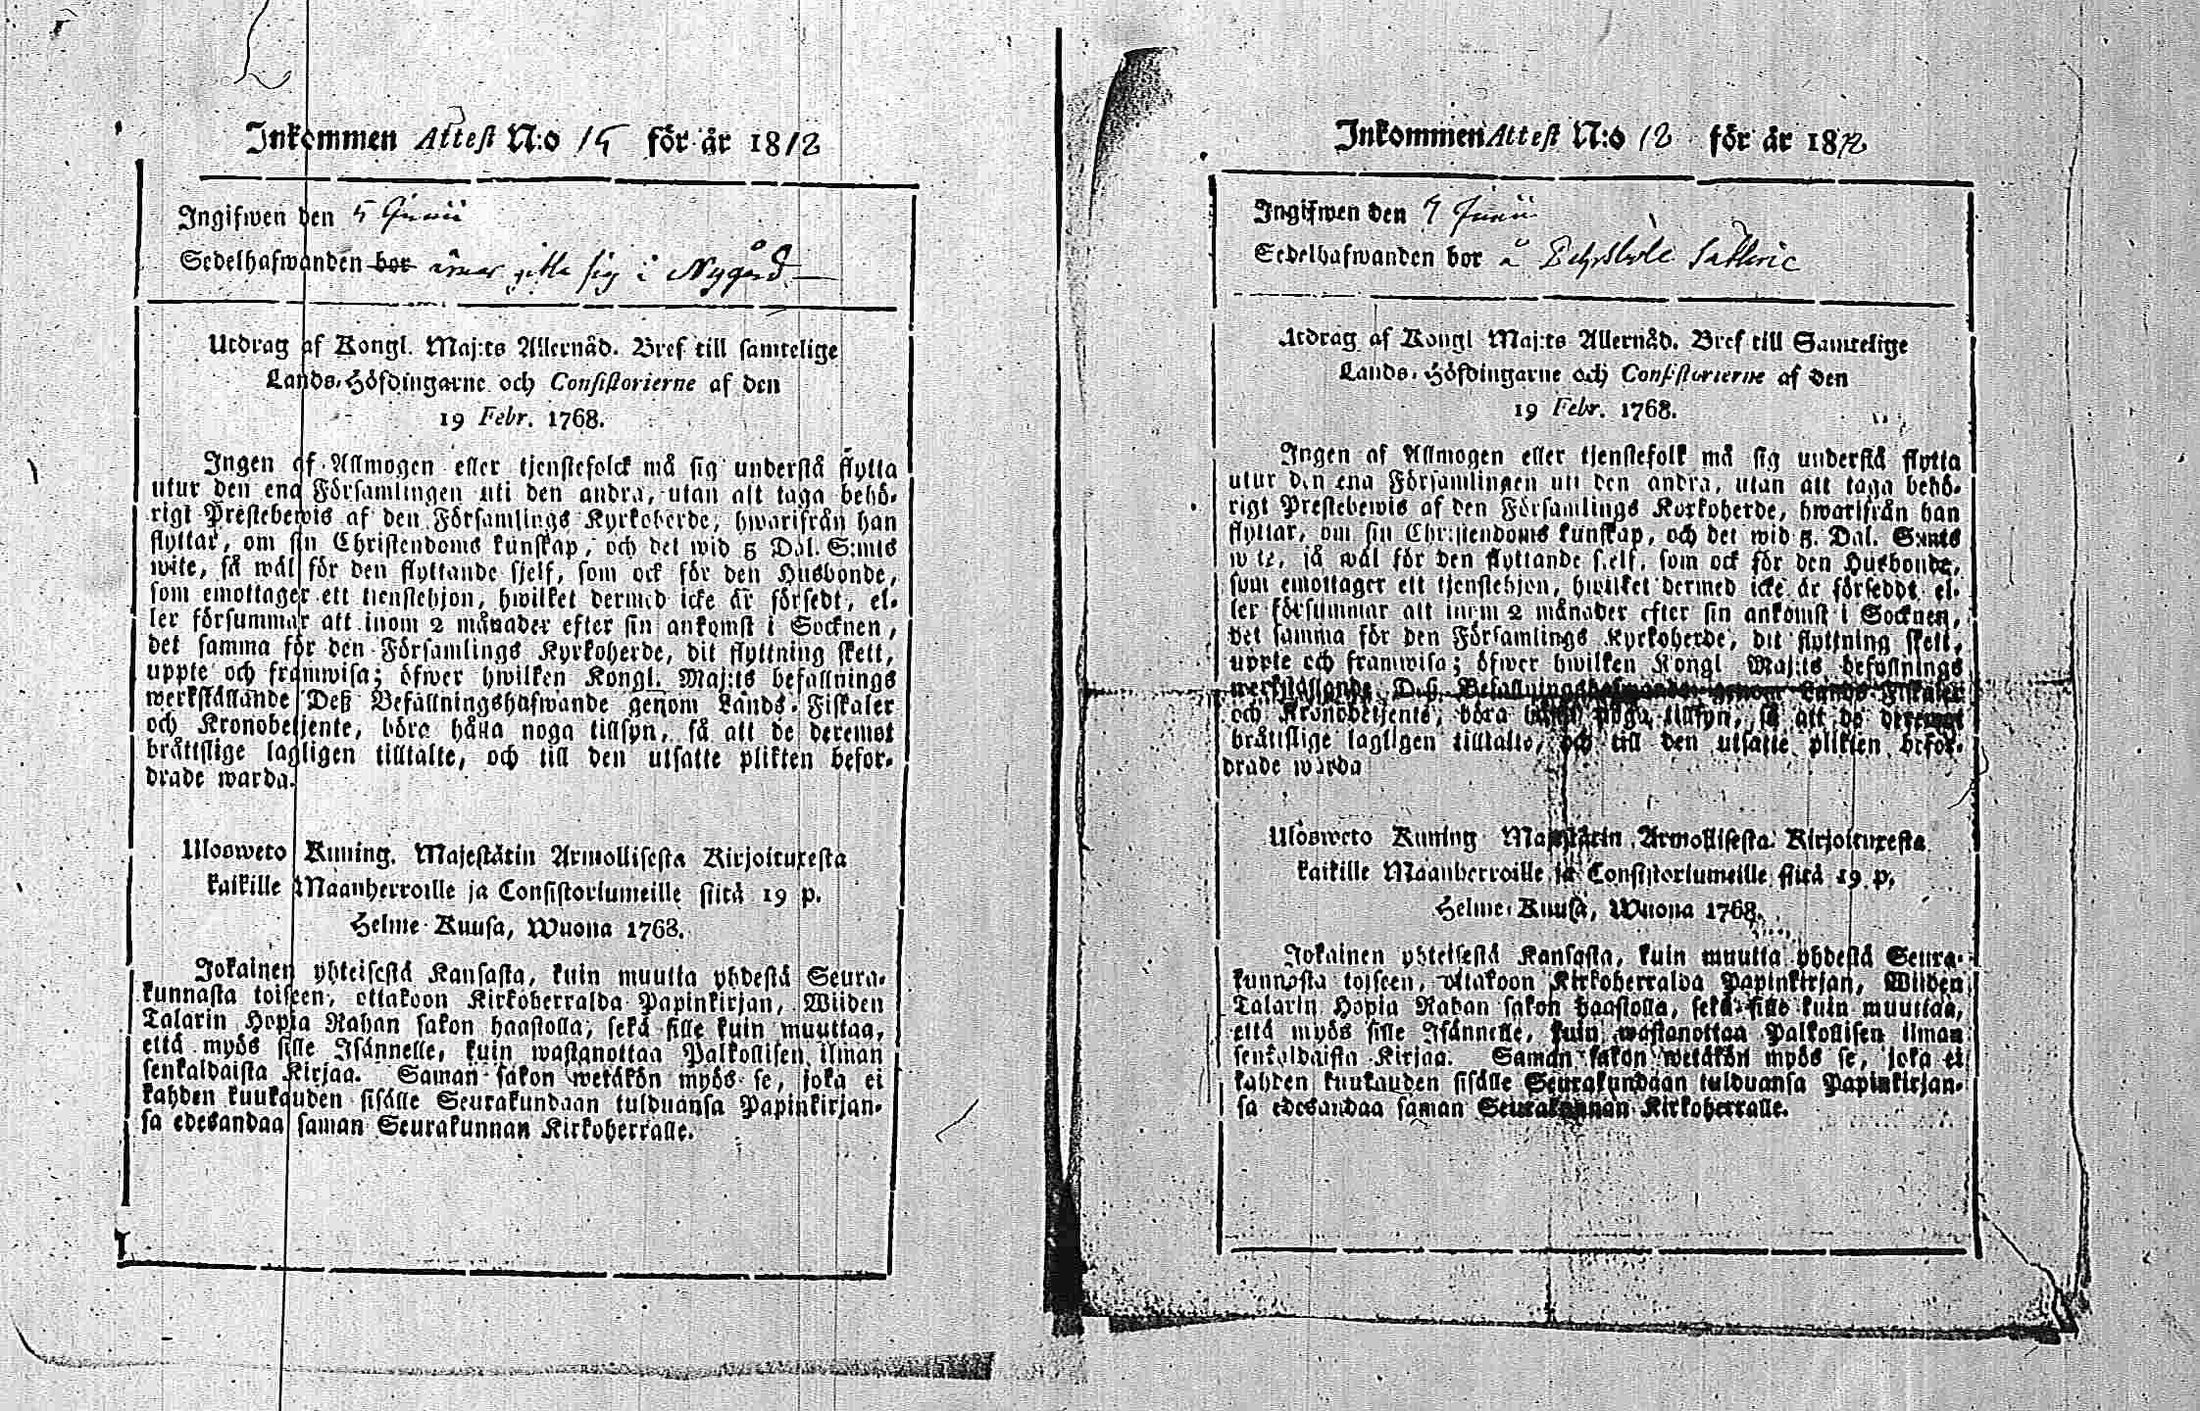 Inkommen Attest N:o 15 för år 1812
Ingifwen den 5 Junii
Sedelhafwanden bor ärnar gifta sig i Nygård
Utdrag af Kongl. Maj:ts Allernåd. Bref till samtelige
Lands-Höfdingarne och Consistorierne af den
19 Febr. 1768.
Ingen af Allmogen eller tjenstefolck må sig understå flytta
utur den ena Församlingen uti den andra, utan att taga behö-
rigt Prestebewis af den Församlings Kyrkoherde, hwarifrån han
flyttar, om sin Christendoms kunskap, och det wid 5 Dal. S:mts
wite, så wäl för den flyttande sjelf, som ock för den Husbonde,
som emottager ett tienstehjon, hwilket dermed icke är försedt, el-
ler försummar att inom 2 månader efter sin ankomst i Socknen,
det samma för den Församlings Kyrkoherde, dit flyttning skett,
uppte och framwisa; öfwer hwilken Kongl. Maj:ts befallnings
werkställande Deß Befallningshafwande genom Lands-Fiskaler
och Kronobetjente, böra hålla noga tillsyn, så att de deremot
bråttslige lagligen tilltalte, och till den utsatte plikten befor-
drade warda.
Ulosweto Kuning. Majestätin Armollisesta Kirjoituxesta
kaikille Maanherroille ja Consistoriumeille siitä 19 p.
Helme-Kuusa, Wuona 1768.
Jokainen yhteisestä Kansasta, kuin muutta yhdestä Seura-
kunnasta toiseen, ottakoon Kirkoherralda Papinkirjan, Wiiden
Talarin Hopia Rahan sakon haastolla, sekä sille kuin muuttaa,
että myös sille Isännelle, kuin wastanottaa Palkollisen ilman
senkaldaista Kirjaa. Saman sakon wetäkön myös se, joka ei
kahden kuukauden sisälle Seurakundaan tulduansa Papinkirjan-
sa edesandaa saman Seurakunnan Kirkoherralle.
Inkommen Attest N:o 12 för år 1812
Ingifwen den 7 Junii
Sedelhafwanden bor å
Utdrag af Kongl Maj:ts Allernåd. Bref till Samtelige
Lands-Höfdingarne och Consistorierne af den
19 Febr. 1768.
Ingen af Allmogen eller tjenstefolk må sig understå flytta
utur den ena Församlingen uti den andra, utan att taga behö-
rigt Prestebewis af den Församlings Kyrkoherde, hwarifrån han
flyttar, om sin Christendoms kunskap, och det wid 5. Dal. S:mts
wite, så wäl för den flyttande sjelf, som ock för den Husbonde,
som emottager ett tjenstehjon, hwilket dermed icke är förseddt, el-
ler försummar att inom 2 månader efter sin ankomst i Socknen,
det samma för den Församlings Kyrkoherde, dit flyttning skett,
uppte och framwisa; öfwer hwilken Kongl Maj:ts befallnings
werkställande Deß Befallningshafwande genom Lands-Fiskaler
och Kronobetjente, böra hålla noga tillsyn, så att de deremot
bråttslige lagligen tilltalte, och till den utsatte plikten befor-
drade warda
Ulosweto Kuning Majestätin Armollisesta Kirjoituxesta
kaikille Maanherroille ja Consistoriumeille siitä 19 p.
Helme-Kuusa, Wuona 1768.
Jokainen yhteisestä Kansasta, kuin muutta yhdestä Seura-
kunnasta toiseen, ottakoon Kirkoherralda Papinkirjan, Wiiden
Talarin Hopia Rahan sakon haastolla, sekä sille kuin muuttaa,
että myös sille Isännelle, kuin wastanottaa Palkollisen ilman
senkaldaista Kirjaa. Saman sakon wetäkön myös se, joka ei
kahden kuukauden sisälle Seurakundaan tulduansa Papinkirjan-
sa edesandaa saman Seurakunnan Kirkoherralle.